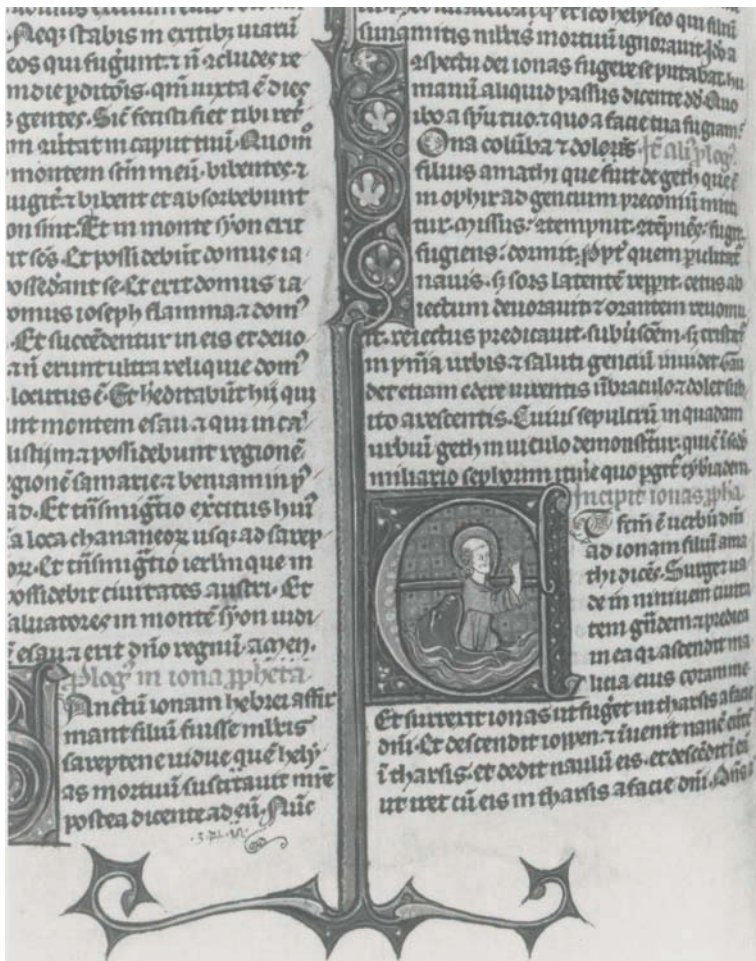 Neqз stabis in exitibз uiarū
eos qui fugiunt. ⁊ nō ɔcludes re
die ꝑditōis. qm̄ iuxta ē dies
gentes. Sic̄ fecisti fiet tibi ret
in caput tuū. Quomō
montem sc̄m meū. bibentes. ⁊
⁊ bibent et absorbebunt
non sint. Et in monte syon erit
sc̄s. Et possidebūt domus ia
se. Et erit domus ia
domus ioseph flamma. ⁊ domꝰ
Et succēdentur in eis et deuo
⁊ nō erunt ultra reliquie domꝰ
locutus ē. Et heditabūt hii qui
montem esau. ⁊ qui in cāꝰ
⁊ possidebunt regionē
regionē samarie. ⁊ beniamin
Et tn̄smigtio exc̄itus huiꝰ
loca chananeoꝝ usqз ad sarep
Et tn̄smigtio ierlm̄ que in
possidebit ciuitates austri. Et
saluatores in montē syon iudi
esau. ⁊ erit dn̄o regnū. amen.
ꝓlogꝰ in iona ꝓphetā
Sanctū ionam hebrei affir
mant filiū fuisse ml̄ris
sareptene uidue quē hely
as mortuū suscitauit mr̄e
postea dicente ad eū. Nūc
et ico helyseo qui filiū
sunamitis ml̄ris mortuū ignorauit.
aspectu dei ionas fugere se putabat. hu
manū aliquid passus dicente dd. Quo
ibo a spū tuo. ⁊ quo a facie tua fugiam.
Iona colūba ⁊ doloris It̄ aliꝰ ꝓlogꝰ
filius amathi que fuit de geth que ē
in ophir ad gencium preconiū mitti
tur. Missus: ɔtempnit. ɔtēpnēs: fugit.
fugiens: dormit. ꝓpt̄ quem ꝑiclitat̄
nauis. sз sors latentē reppit. cetus ab
iectum deuorauit ⁊ orantem reuomu
it. reiectus predicauit.
in urbis. ⁊ saluti genciū inuidet Gau
det etiam edere uirentis ūbraculo ⁊ dolet sub
ito arescentis. Cuius sepulcrū in quadam
urbiū geth in uiculo demonstrat̄. que ē
miliario itin̄e quo
Incipit ionas ꝓpha.
Et fc̄m ē uerbū dn̄i
ad ionam filiū ama
thi dicēs. Surge ⁊ ua
de in niniuen ciuita
tem gn̄dem ⁊ predica
in ea qꝛ ascendit ma
licia eius coram me
Et surrexit ionas ut fuget in tharsis a facie
dn̄i. Et descendit ioppen. ⁊ īuenit nauē eūtē
ī tharsis. et dedit naulū eis. et descēdit ī eā
ut iret cū eis in tharsis a facie dn̄i.